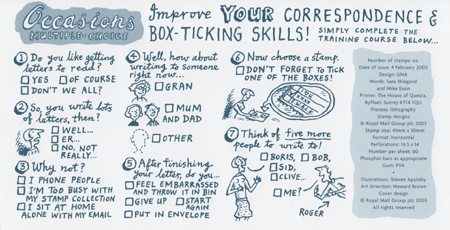 Occasions
MULTIPLE-CHOICE
Improve YOUR CORRESPONDENCE &
BOX-TICKING SKILLS! SIMPLY COMPLETE THE
TRAINING COURSE BELOW...
1 Do you like getting
letters to read?
YES OF COURSE
DON'T WE ALL?
2 So, you write lots
of letters, then?
WELL...
ER...
NO, NOT
REALLY...
3 Why not?
I PHONE PEOPLE
I'M TOO BUSY WITH
MY STAMP COLLECTION
I SIT AT HOME
ALONE WITH MY EMAIL
4 Well, how about
writing to someone
right now...
GRAN
MUM AND
DAD
OTHER
5 After finishing
your letter, do you...
FEEL EMBARRASSED
AND THROW IT IN BIN
GIVE UP START
AGAIN
PUT IN ENVELOPE
6 Now choose a stamp.
DON'T FORGET TO TICK
ONE OF THE BOXES!
7 Think of five more
people to write to!
BORIS, BOB,
SID,
CLIVE...
ME!
ROGER
Number of stamps: six
Date of issue: 4 February 2003
Design: UNA
Words: Sara Wiegand
and Mike Exon
Printer: The House of Questa,
Byfleet, Surrey KT14 7QU
Process: lithography
Stamp designs
© Royal Mail Group plc 2003
Stamp size: 41mm x 30mm
Format: horizontal
Perforations: 14.5 x 14
Number per sheet: 60
Phosphor bars as appropriate
Gum: PVA
Illustrations: Steven Appleby
Art direction: Howard Brown
Cover design
© Royal Mail Group plc 2003
All rights reserved